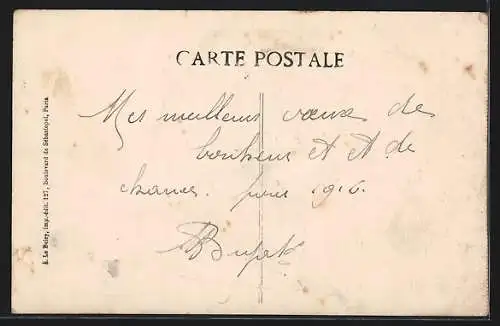 CARTE POSTALE
Mes meilleurs vœux de
bonheur et et de
chance pour 1916.
E. Le Deley, imp.-édit. 127, Boulevard de Sébastopol, Paris